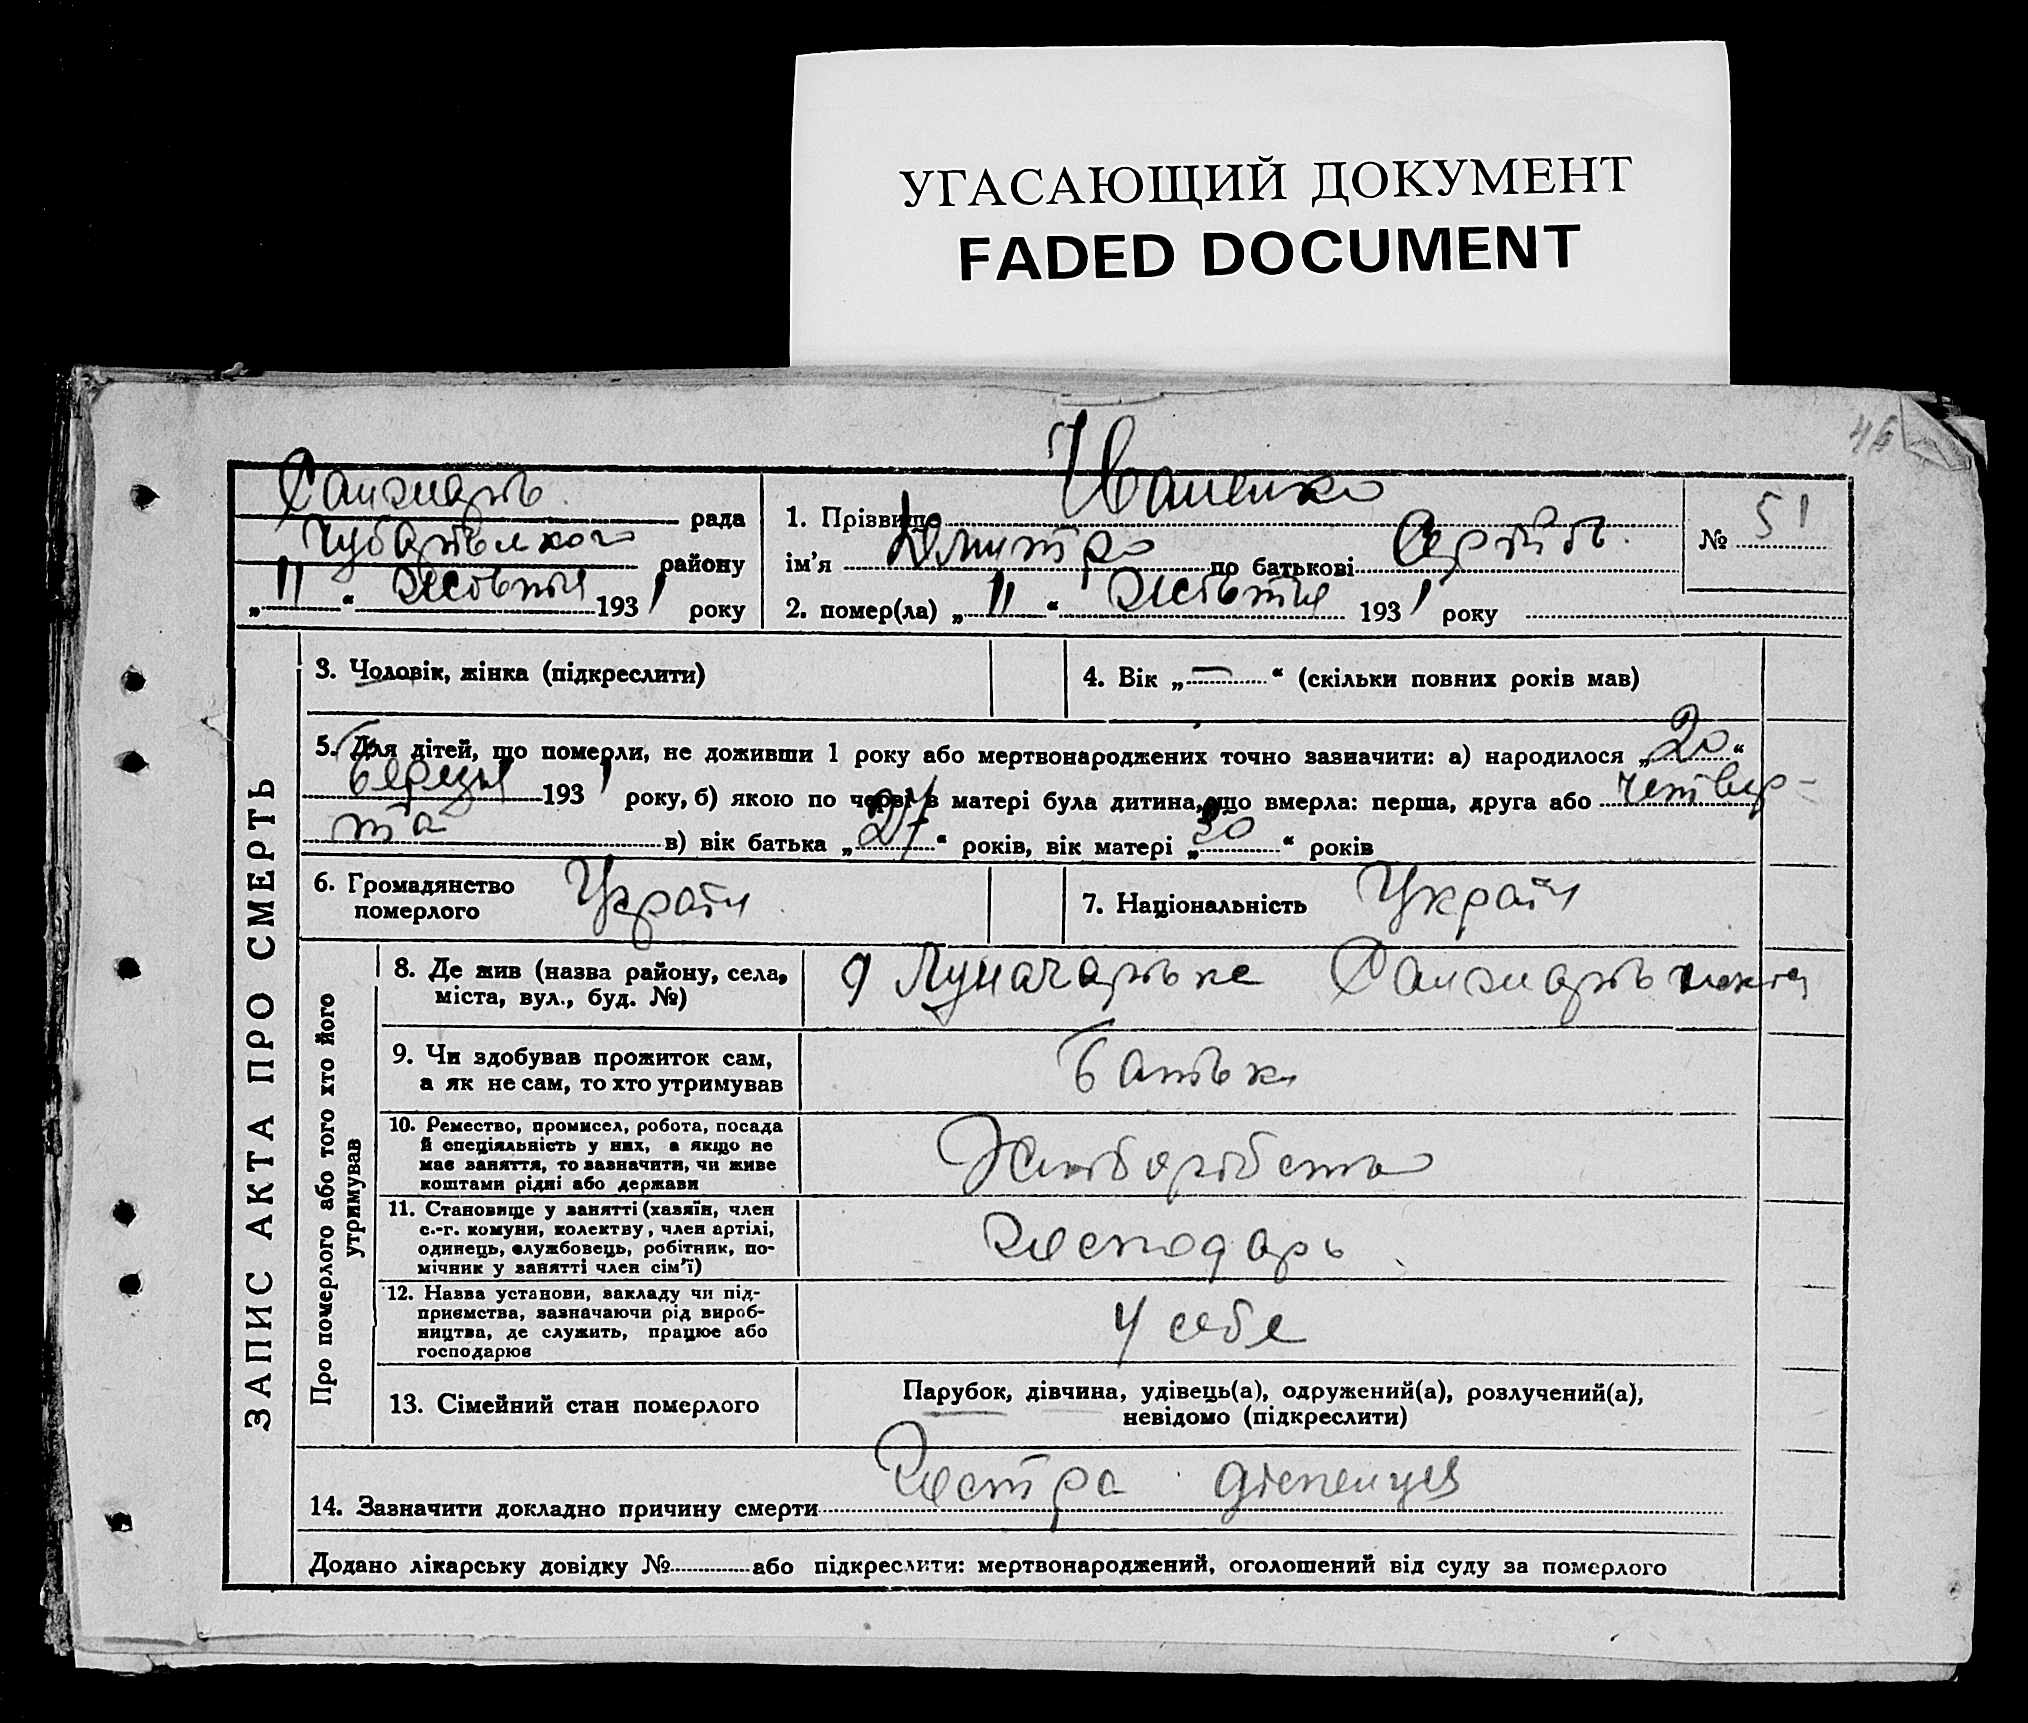 УГАСАЮЩИЙ ДОКУМЕНТ
FADED DOCUMENT
45
Іваненко
рада
району
„11“ Жовтня 1931 року
1. Прізвище
ім'я Дмитро по батькові Сергійов.
2. помер(ла) „11“ Жовтня 1931 року
№ 51
ЗАПИС АКТА ПРО СМЕРТЬ
3. Чоловік, жінка (підкреслити)
4. Вік „—“ (скільки повних років мав)
5. Для дітей, що померли, не доживши 1 року або мертвонароджених точно зазначити: а) народилося „20“
березня 1931 року, б) якою по черві в матері була дитина, що вмерла: перша, друга або четвер-
та в) вік батька „27“ років, вік матері „30“ років
6. Громадянство
померлого
Україн
7. Національність Україн
Про померлого або того хто його
утримував
8. Де жив (назва району, села,
міста, вул., буд. №)
9. Чи здобував прожиток сам,
а як не сам, то хто утримував
Батьки
10. Ремество, промисел, робота, посада
й спеціяльність у них, а якщо не
має заняття, то зазначити, чи живе
коштами рідні або держави
Хліборобство
11. Становище у занятті (хазяїн, член
с.-г. комуни, колективу, член артілі,
одинець, службовець, робітник, по-
мічник у занятті член сім'ї)
Господарь
12. Назва установи, закладу чи під-
приємства, зазначаючи рід вироб-
ництва, де служить, працює або
господарює
У себе
13. Сімейний стан померлого
Парубок, дівчина, удівець(а), одружений(а), розлучений(а),
невідомо (підкреслити)
14. Зазначити докладно причину смерти Гостра
Додано лікарську довідку № або підкреслити: мертвонароджений, оголошений від суду за померлого